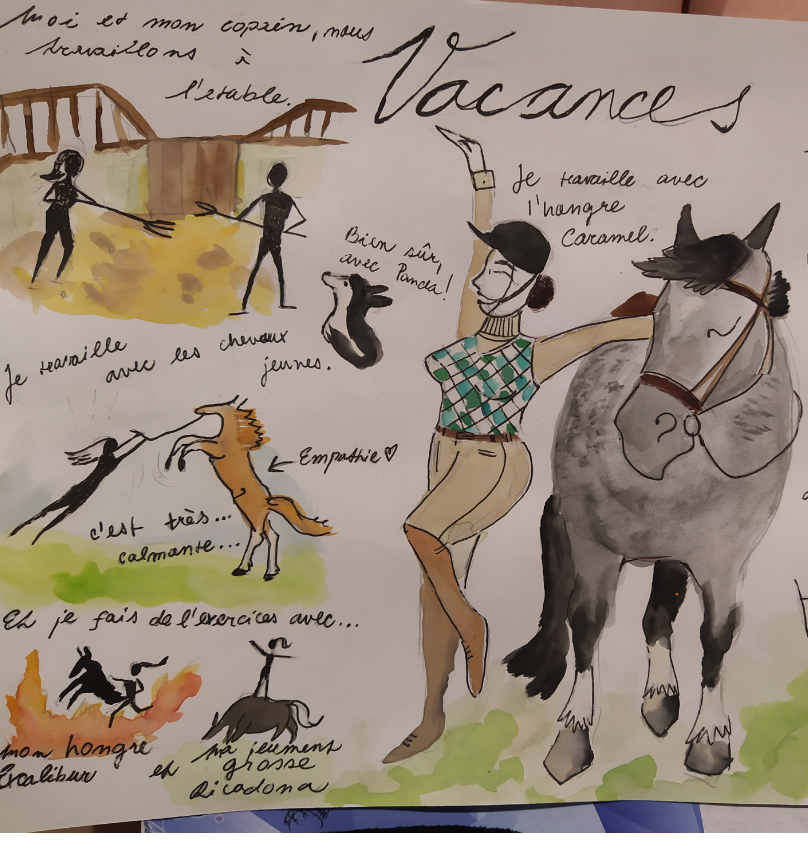 Moi et mon copain, nous
travaillons à
l'étable.
Vacances
Je travaille avec
l'hongre
Caramel.
Bien sûr,
avec Panda!
Je travaille
avec les chevaux
jeunes.
← Empathie ♡
c'est très...
calmante...
Et je fais de l'exercices avec...
mon hongre
Excalibur
et ma jeument
grosse
Ricadona